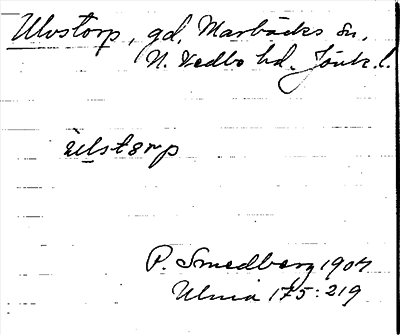 Ulvstorp, gd, Marbäcks sn,
N. Vedbo hd. Jönk. l.
ùlstərp
P. Smedberg 1904
Ulma 175:219